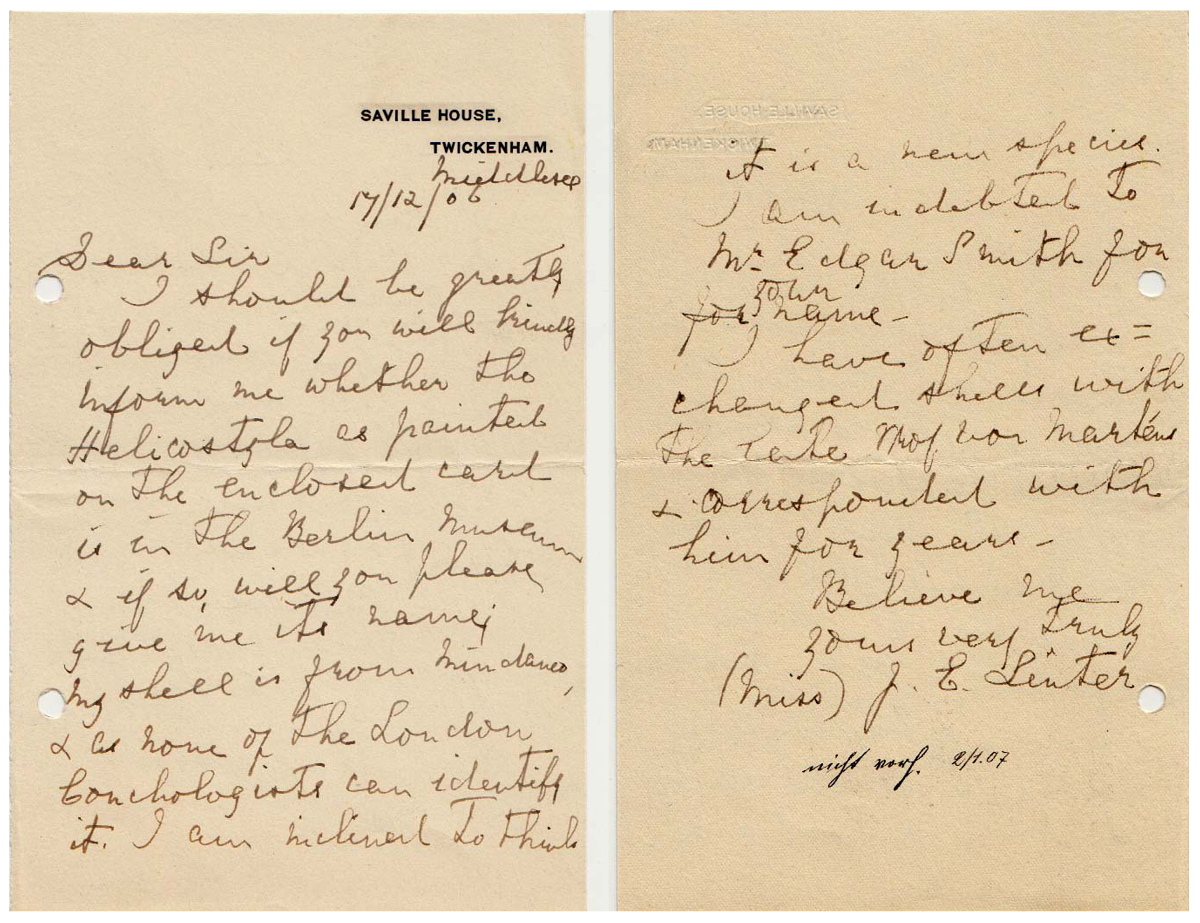 SAVILLE HOUSE,
TWICKENHAM.
Middlesex
17/12/06
Dear Sir
I should be greatly
obliged if you will kindly
inform me whether the
Helicostyla as painted
on the enclosed card
is in the Berlin Museum
& if so, will you please
give me its name;
My shell is from Mindanao,
& as none of the London
Conchologists can identify
it. I am inclined to think
it is a new species.
I am indebted to
Mr. Edgar Smith for
your
for name -
I have often ex=
changed shells with
the late Prof von Martens
& corresponded with
him for years -
Believe me
yours very truly
(Miss) J. E. Linter
nicht vorh. 2/1.07